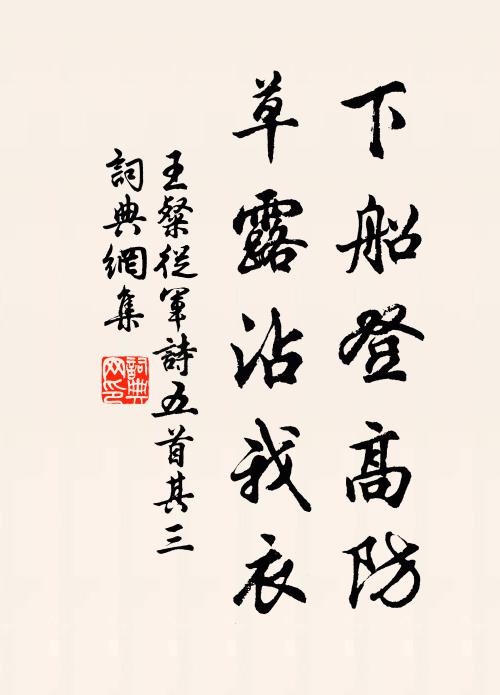 下船登高防
草露沾我衣
王粲從軍詩五首其三
詞典網集
詞典网印